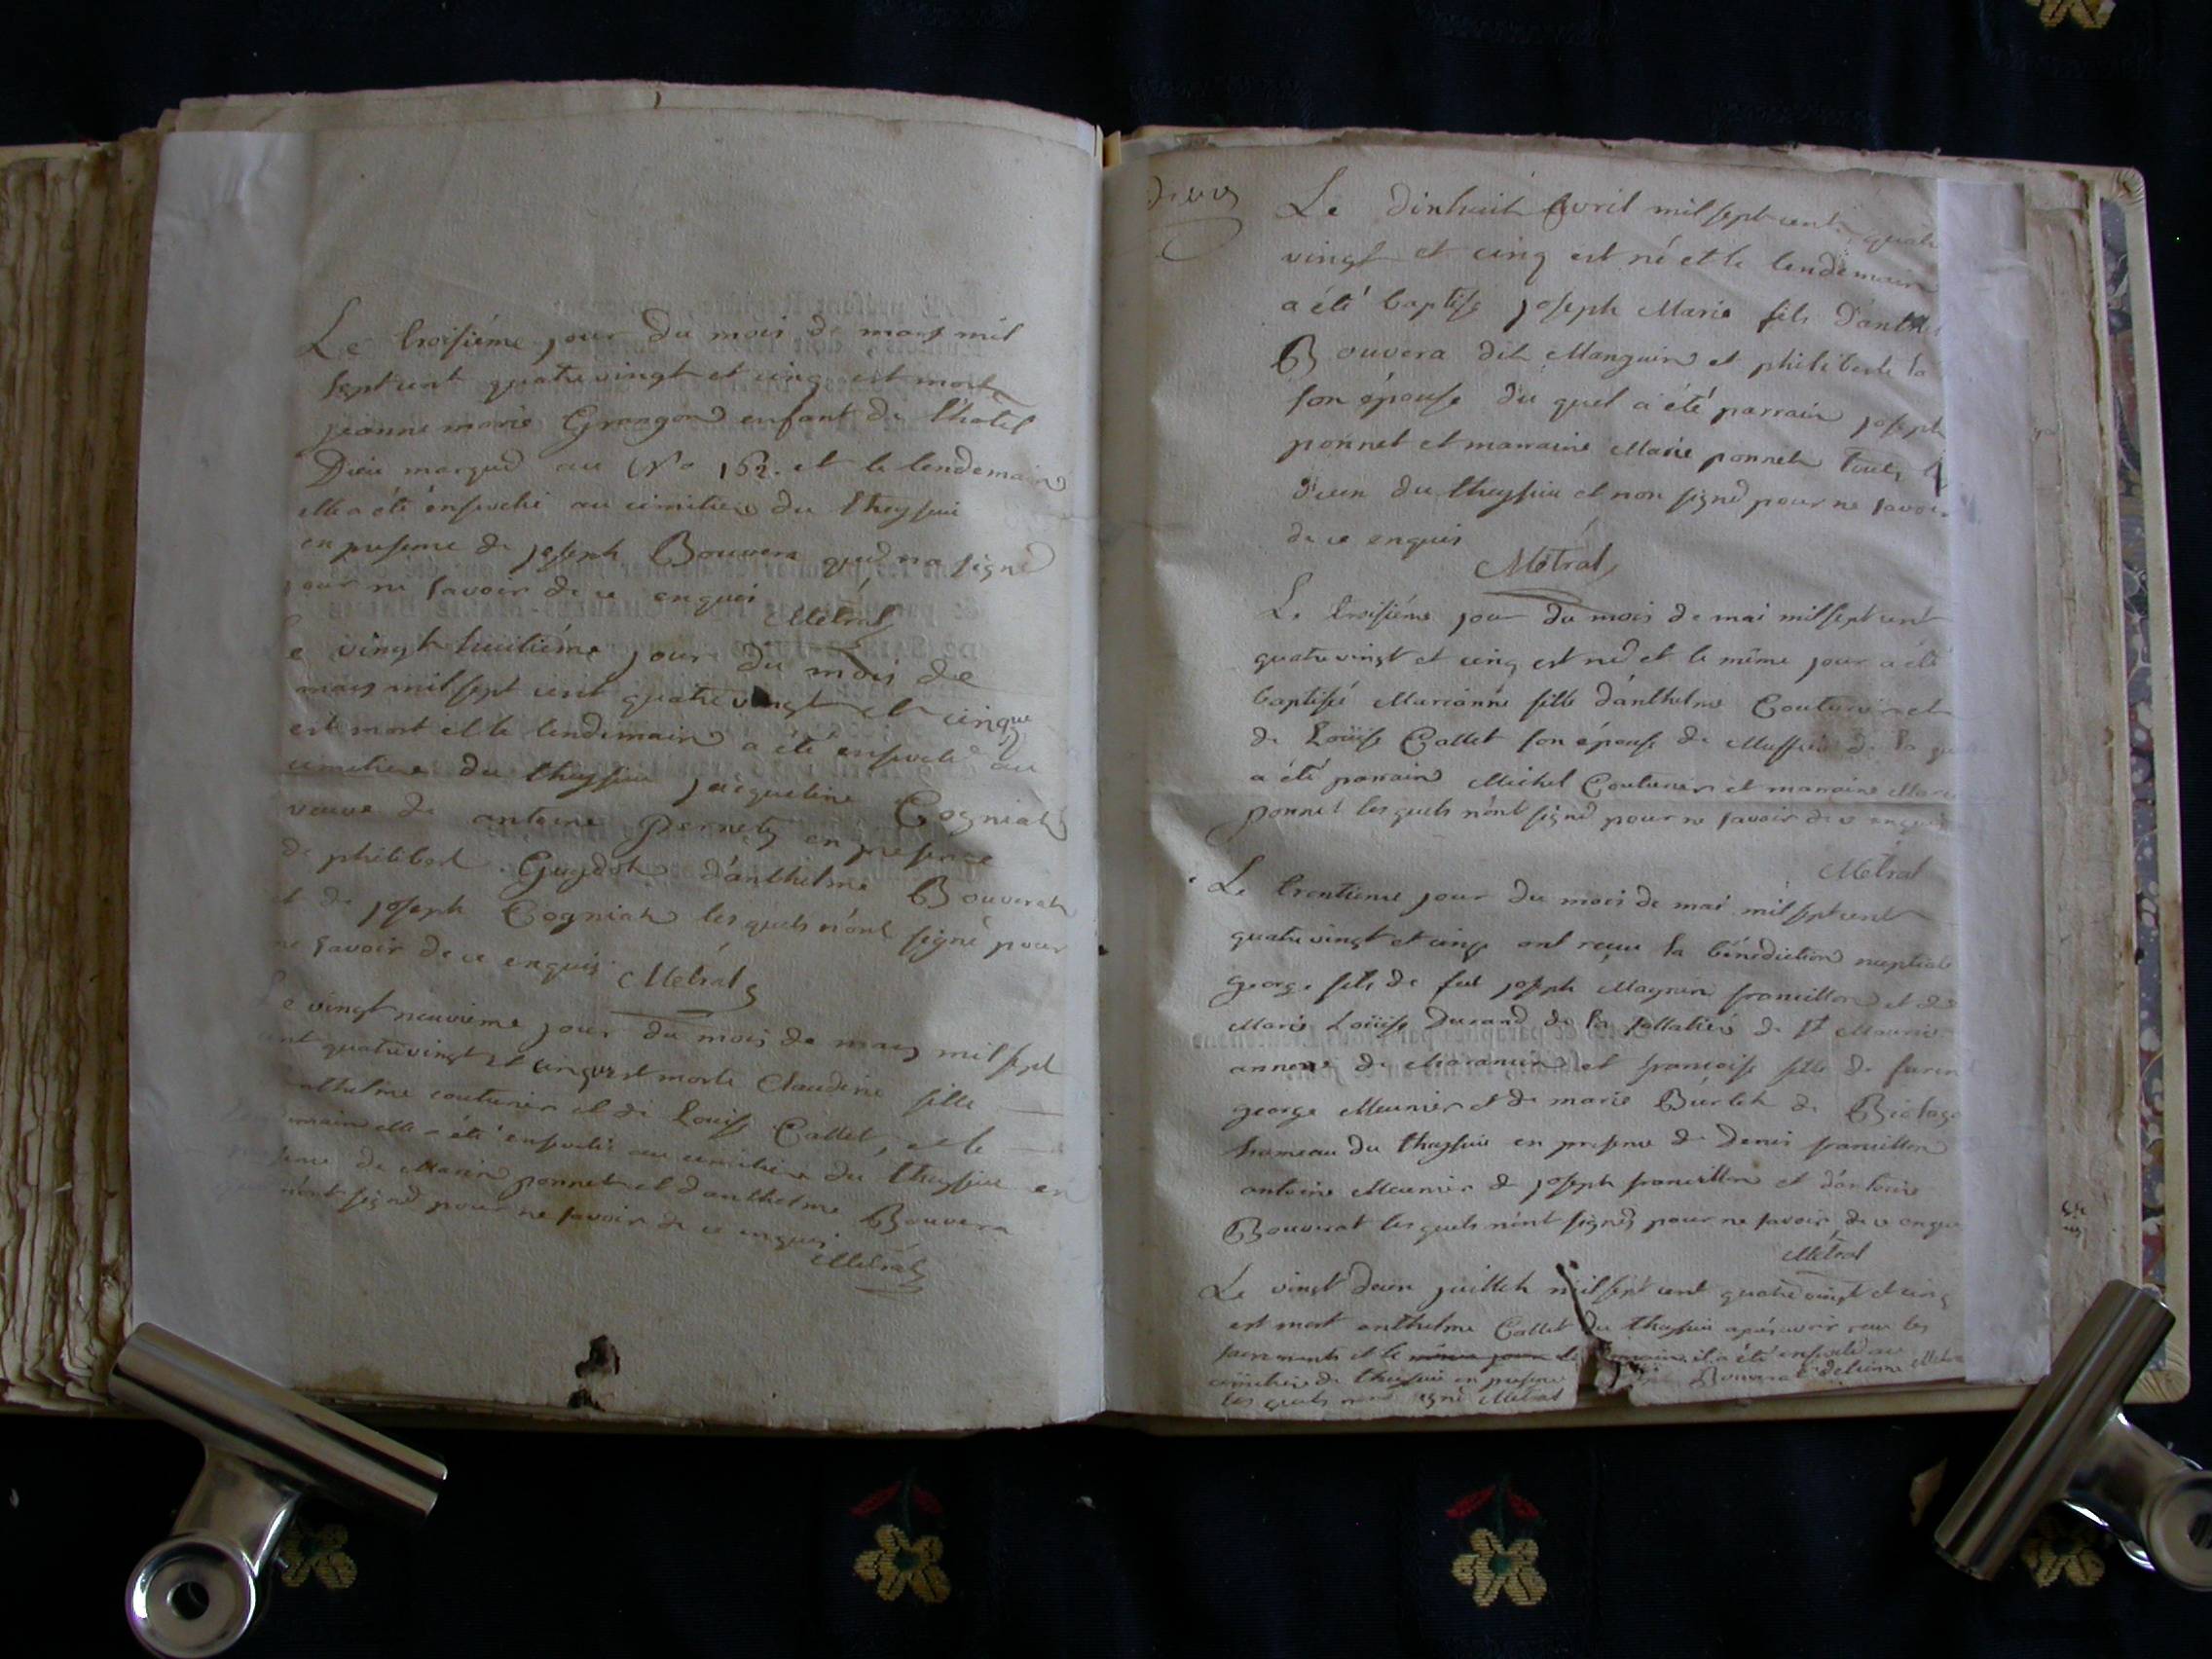 Le troisiéme jour du mois de mars mil
sept cent quatre vingt et cinq est morte
jeanne marie Grangon enfant de l'hôtel
Dieu marqué au No 162. et le lendemain
elle a été énsevelie au cimitiere du theysieu
en presence de joseph Bouvera qui n'a signé
pour ne savoir de ce enquis
Métral
Le vingt huitiéme jour du mois de
mars mil sept cent quatre vingt et cinq
est mort et le lendemain a été ensevelie au
cimitiere du theysieu jacqueline Cogniat
veuve de antoine Pernet en presence
de philibert Guydot d'anthelme Bouverat
et de joseph Cogniat les quels n'ont signé pour
ne savoir de ce enquis Métral
Le vingt neuviéme jour du mois de mars mil sept
cent quatre vingt et cinq est morte Claudine fille
anthelme couturier et de Louise Callet, et le
elle a été ensevelie au cimitiere du theysieu en
de Marin ponnet et d'anthelme Bouvera
n'ont signé pour ne savoir de ce enquis
Métral
Le dixhuit avril mil sept cent quatre
vingt et cinq est né et le lendemain
a été baptisé joseph Marie fils d'anthel
Bouvera dit Manguin et philiberte
son épouse du quel a été parrain joseph
ponnet et marraine Marie ponnet tous
deux du theysieu et non signé pour ne savoir
de ce enquis
Métral
Le troisiéme jour du mois de mai mil sept cent
quatre vingt et cinq est née et le même jour a été
baptisée Marianne fille d'anthelme Couturier et
de Loüise Callet son épouse de
a été parrain Michel Couturier et marraine Marie
ponnet les quels n'ont signé pour ne savoir de ce enquis
Métral
Le trentieme jour du mois de mai mil sept cent
quatre vingt et cinq ont reçu la bénédiction nuptiale
george fils de feu joseph Magnin francillon et de
Marie Loüise Durand de la de St Maurice
annexe de et françoise fille de
george Meunier et de marie Burlet de
hameau du theysieu en presence de Denis francillon
antoine Meunier de joseph francillon et d'antoine
Bouverat les quels n'ont signés pour ne savoir de ce enquis
Métral
Le vingt deux juillet mil sept cent quatre vingt et cinq
est mort anthelme Callet du theysieu apres avoir reçu les
sacrements et le même jour il a été enseveli au
cimitiere de theysieu en presence Bouvera
les quels signé Métral